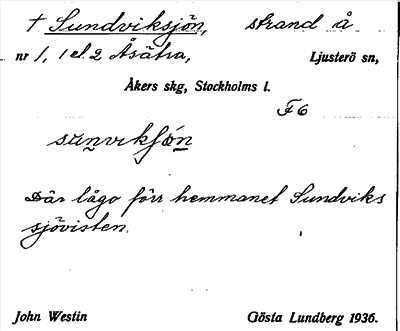 † Sundviksjön, strand å
nr 1, 1 el. 2 Åsätra, Ljusterö sn,
Åkers skg, Stockholms l.
F6
Där lågo förr hemmanet Sundviks
sjövisten.
John Westin Gösta Lundberg 1936.